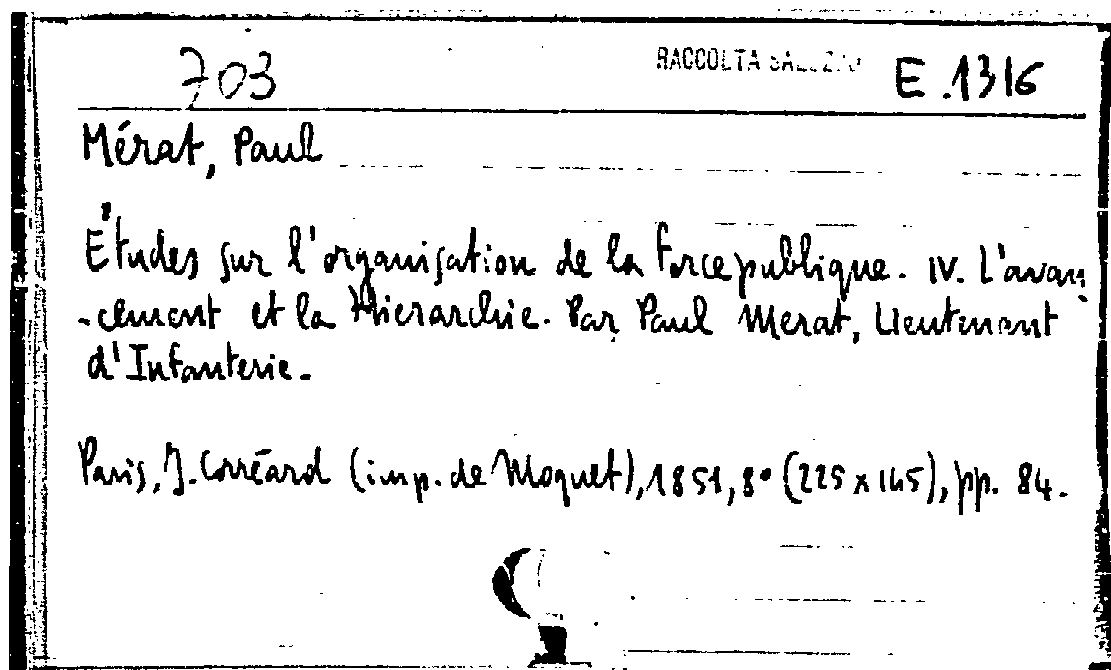 703 RACCOLTA SALUZZO E.1316
Mérat, Paul
Études sur l'organisation de la force publique. IV. L'avan-
-cement et la Hierarchie. Par Paul Merat, Lieutenant
d'Infanterie.
Paris, J. Corréard (imp. de Moquet), 1851, 8° (225 x 145), pp. 84.